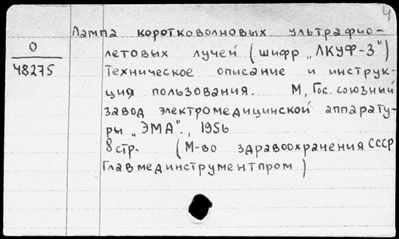 4
Лампа коротковолновых ультрафио-
О
48275
летовых лучей (шифр „ЛКУФ-3")
Техническое описание и инструк-
ция пользования. М, Гос. союзный
завод электромедицинской аппарату-
ры „ЭМА"., 1956
8 стр. (М-во здравоохранения СССР
Главмединструментпром)